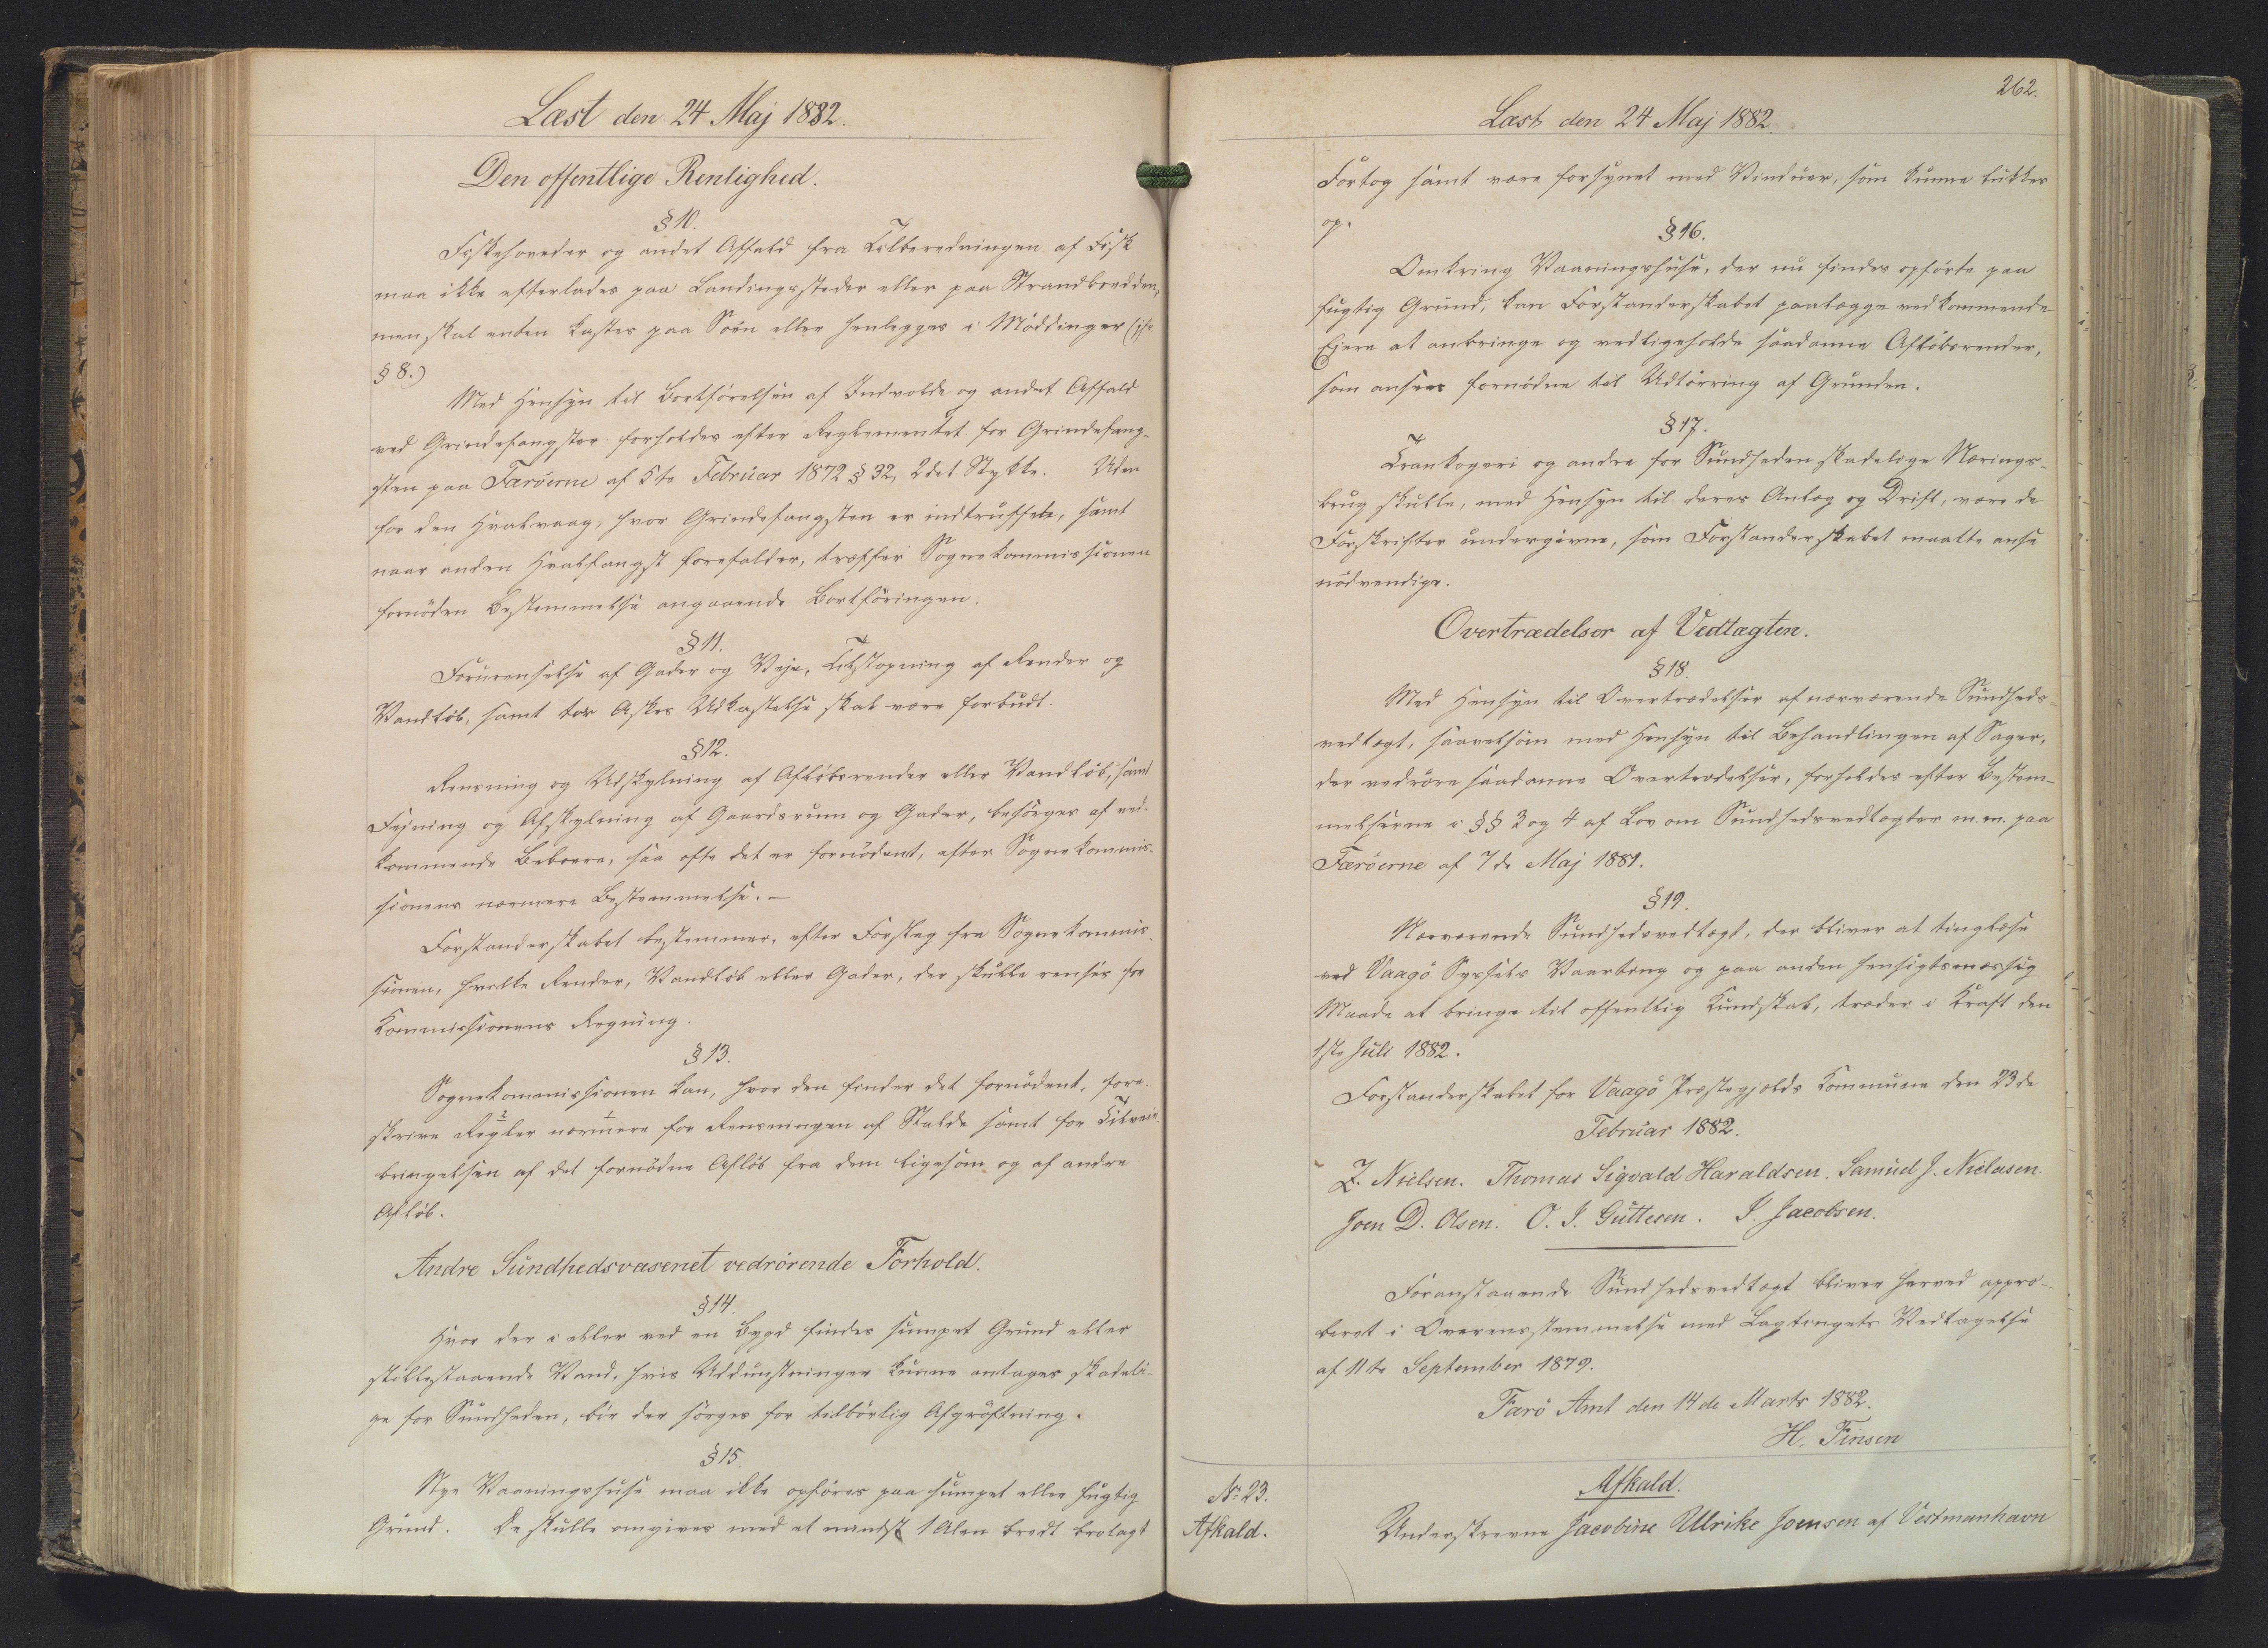 Læst den 24 Maj 1882.
Den offentlige Renlighed.
§ 10.
Fiskehoveder og andet Affald fra Tilberedningen af Fisk
maa ikke efterlades paa Landingssteder eller paa Strandbredden,
men skal enten kastes paa Søen eller henlegges i Møddinger (jfr.
§ 8.)
Med Hensyn til Bortførelsen af Indvolde og andet Affald
ved Grindefangster forholdes efter Reglementet for Grindefang-
sten paa Færøerne af 5te Februar 1872 § 32, 2det Stykke. Uden
for den Hvalvaag, hvor Grindefangsten er indtruffet, samt
naar anden Hvalfangst forefalder, træffer Sognekommissionen
fornøden Bestemmelse angaaende Bortføringen.
§ 11.
Forurenselse af Gader og Veje, Tilstopning af Render og
Vandløb, samt tør Askes Udkastelse skal være forbudt.
§ 12.
Rensning og Udskylning af Afløbsrender eller Vandløb, samt
Fejning og Afskylning af Gaardsrum og Gader, besørges af ved-
kommende Beboere, saa ofte det er fornødent, efter Sognekommis-
sionens nærmere Bestemmelse. —
Forstanderskabet bestemmer, efter Forslag fra Sognekommis-
sionen, hvilke Render, Vandløb eller Gader, der skulle renses for
Kommissionens Regning.
§ 13.
Sognekommissionen kan, hvor den finder det fornødent, fore-
skrive Regler nærmere for Rensningen af Stalde samt for Tilveie-
bringelsen af det fornødne Afløb fra dem ligesom og af andre
Afløb.
Andre Sundhedsvæsenet vedrørende Forhold.
§ 14.
Hvor der i eller ved en Bygd findes sumpet Grund eller
stillestaaende Vand, hvis Uddunstninger kunne antages skadeli-
ge for Sundheden, bør der sørges for tilbørlig Afgrøftning.
§ 15.
Nye Vaaningshuse maa ikke opføres paa sumpet eller fugtig
Grund. De skulle omgives med et mindst 1 Alen bredt brolagt
262.
Læst den 24 Maj 1882.
Fortog samt være forsynet med Vinduer, som kunne lukkes
op.
§ 16.
Omkring Vaaningshuse, der nu findes opførte paa
fugtig Grund, kan Forstanderskabet paalægge vedkommende
Ejere at anbringe og vedligeholde saadanne Afløbsrender,
som ansees fornødne til Udtørring af Grunden.
§ 17.
Trankogeri og andre for Sundheden skadelige Nærings-
brug skulle, med Hensyn til deres Anlæg og Drift, være de
Forskrifter undergivne, som Forstanderskabet maatte anse
nødvendige.
Overtrædelser af Vedtægten.
§ 18.
Med Hensyn til Overtrædelser af nærværende Sundheds-
vedtægt, saavelsom med Hensyn til Behandlingen af Sager,
der vedrøre saadanne Overtrædelser, forholdes efter Bestem-
melserne i §§ 3 og 4 af Lov om Sundhedsvedtægter m. m. paa
Færøerne af 7de Maj 1881.
§ 19.
Nærværende Sundhedsvedtægt, der bliver at tinglæse
ved Vaagø Syssels Vaarting og paa anden hensigtsmæssig
Maade at bringe til offentlig Kundskab, træder i Kraft den
1ste Juli 1882.
Forstanderskabet for Vaagø Præstegjælds Kommune den 23de
Februar 1882.
Z. Nielsen. Thomas Sigvald Haraldsen. Samuel J. Nielasen.
Joen D. Olsen. O. J. Guttesen. J. Jacobsen.
Foranstaaende Sundhedsvedtægt bliver herved appro-
beret i Overensstemmelse med Lagtingets Vedtagelse
af 11te September 1879.
Færø Amt den 14de Marts 1882.
H. Finsen
Nr. 23.
Afkald.
Afkald.
Underskrevne Jacobine Ulrike Joensen af Vestmanhavn